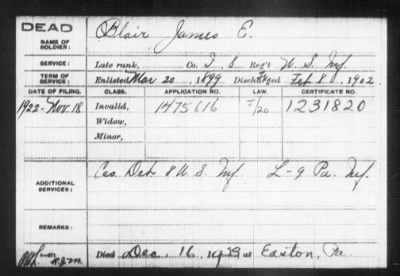 DEAD
NAME OF SOLDIER: Blair James E.
SERVICE: Late rank, Co. I, 8 Reg't U. S. Inf.
TERM OF SERVICE: Enlisted Mar 20, 1899 Discharged Feb 8, 1902
DATE OF FILING. CLASS. APPLICATION NO. LAW. CERTIFICATE NO.
1922-Nov. 18 Invalid, 1475616 1231820
Widow,
Minor,
ADDITIONAL SERVICES: Cas. Det. 8 U. S. Inf L-9 Pa. Inf.
REMARKS:
Died Dec. 16, 1929 at Easton, Pa.